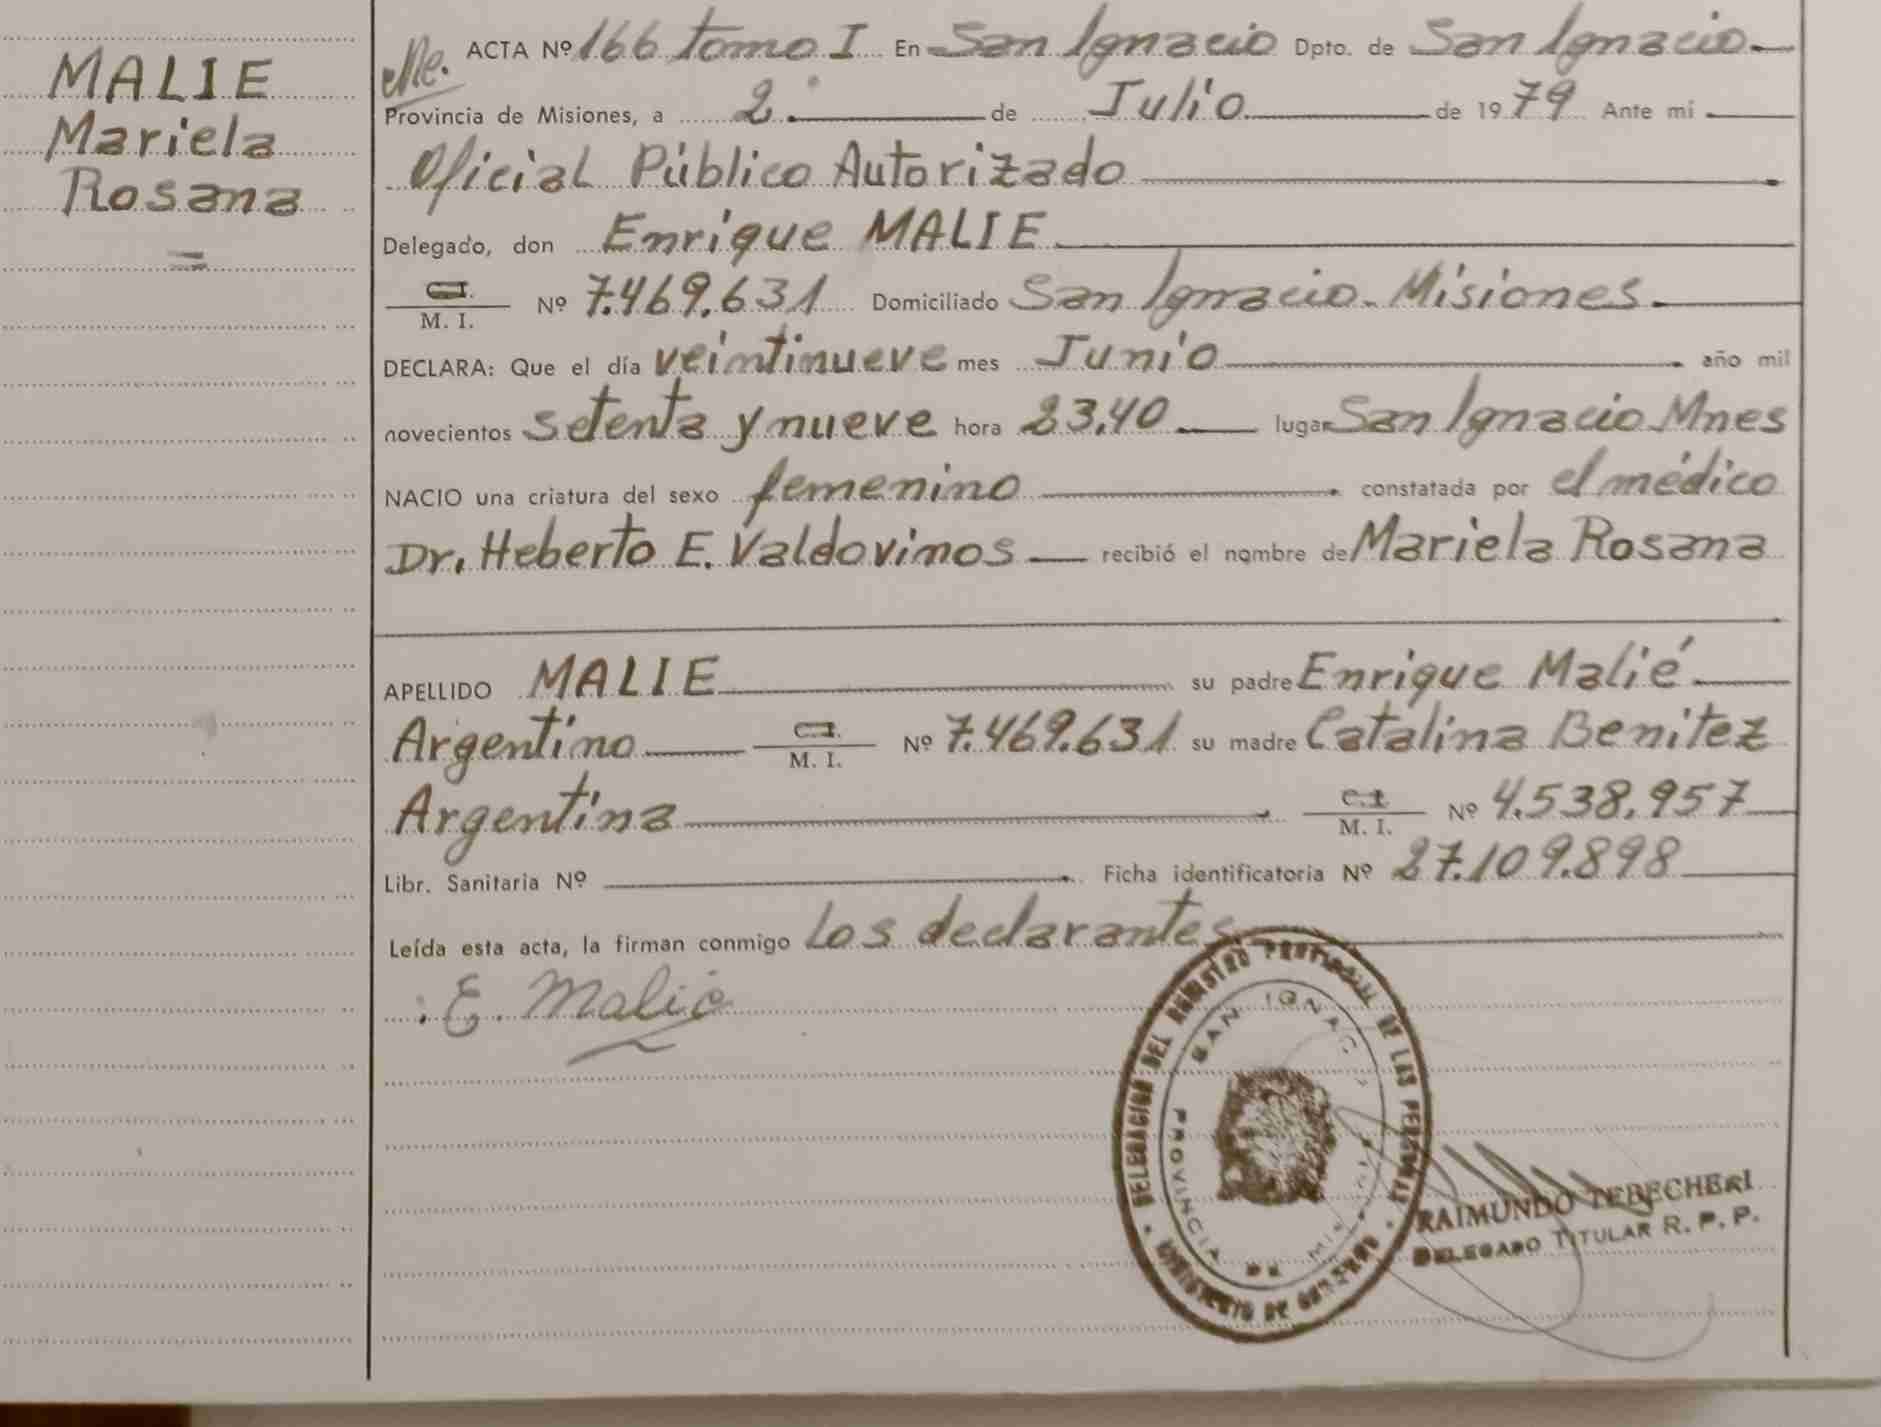 MALIE
Mariela
Rosana
=
ACTA Nº 166 tomo I En San Ignacio Dpto. de San Ignacio
Provincia de Misiones, a 2 de Julio de 1979 Ante mí
Oficial Público Autorizado
Delegado, don Enrique MALIE
C.I. M. I. Nº 7.469.631 Domiciliado San Ignacio. Misiones.
DECLARA: Que el día veintinueve mes Junio año mil
novecientos setenta y nueve hora 23,40 lugar San Ignacio Mnes
NACIO una criatura del sexo femenino constatada por el médico
Dr. Heberto E. Valdovinos recibió el nombre de Mariela Rosana
APELLIDO MALIE su padre Enrique Malié
Argentino C.I. M. I. Nº 7.469.631 su madre Catalina Benitez
Argentina C.I. M. I. Nº 4.538.957
Libr. Sanitaria Nº Ficha identificatoria Nº 27.109.898
Leída esta acta, la firman conmigo los declarantes
E. Malié
DELEGACION DEL REGISTRO PROVINCIAL DE LAS PERSONAS
SAN IGNACIO
PROVINCIA DE MISIONES
MINISTERIO DE GOBIERNO
RAIMUNDO TEBECHERI
DELEGADO TITULAR R. P. P.